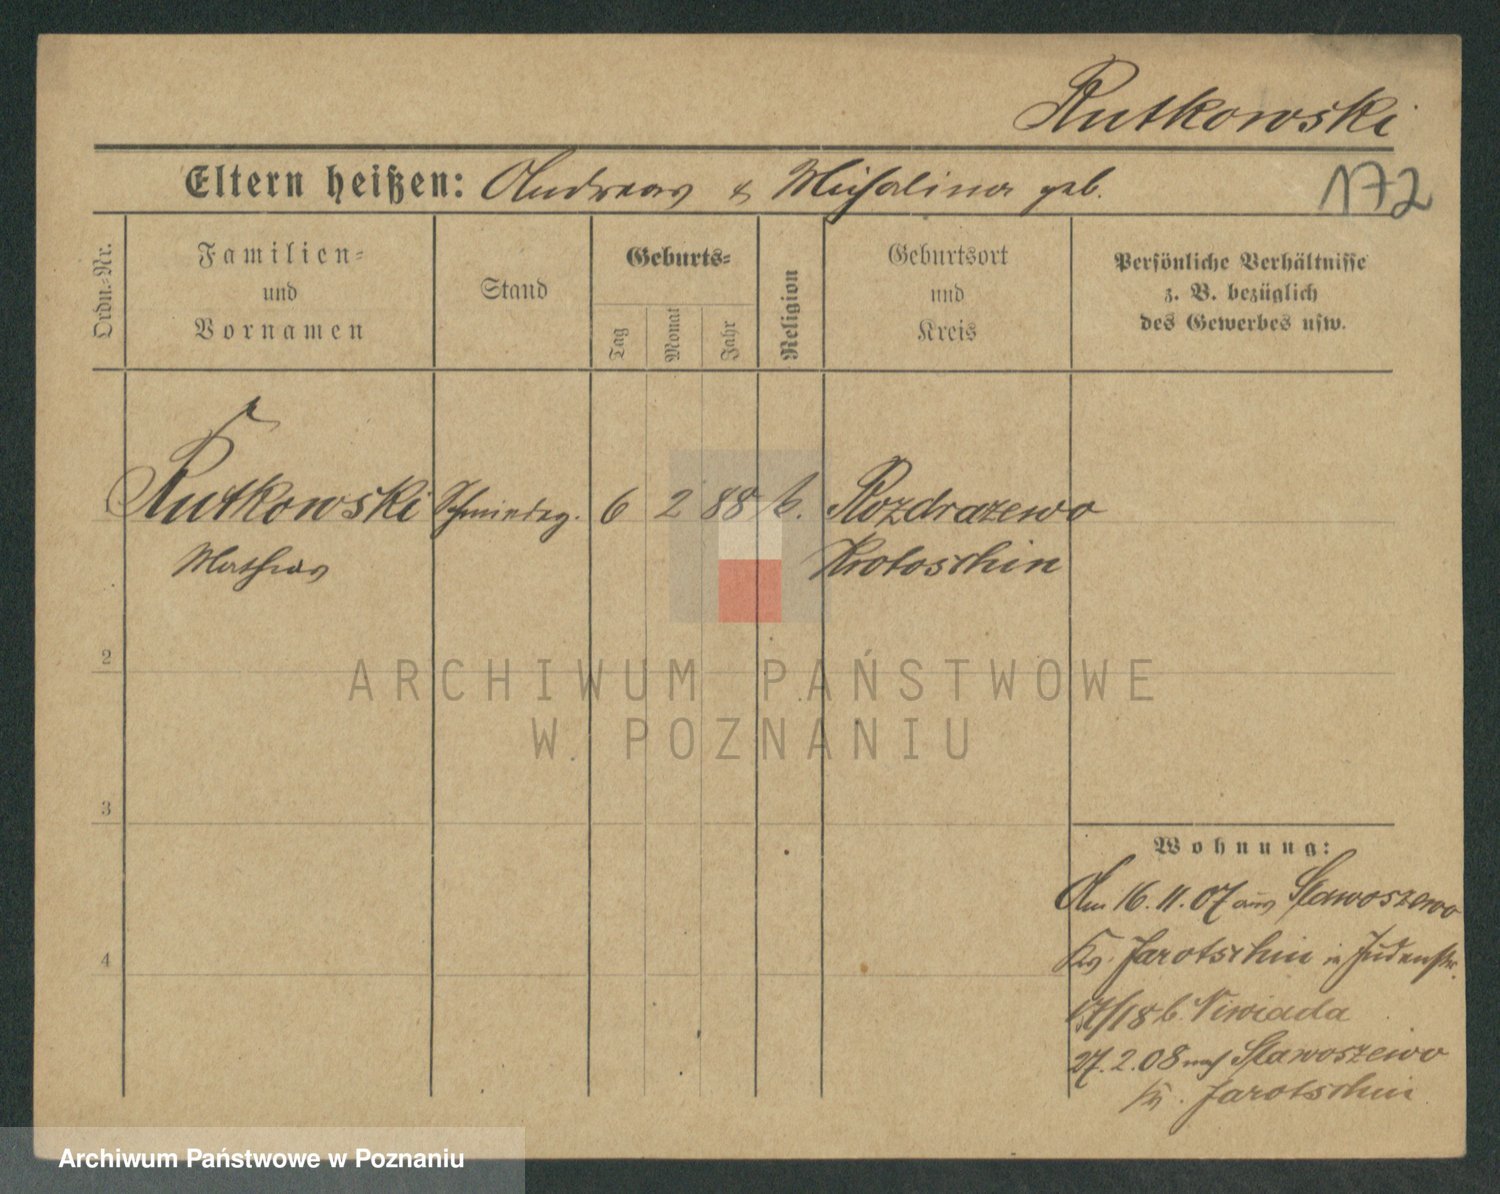 Rutkowski
Eltern heißen: Andreas & Michalina geb.
172
Ordn.-Nr.
Familien-
und
Vornamen
Stand
Geburts-
Tag
Monat
Jahr
Religion
Geburtsort
und
Kreis
Persönliche Verhältnisse
z. B. bezüglich
des Gewerbes usw.
Rutkowski
Mathias
Schmiedeg.
6
2
88
k.
Rozdrazewo
Krotoschin
2
3
4
Wohnung:
Am 16.11.07 aus Slawoszewo
Krs. Jarotschin in Judenstr.
17/18 b. Niwiada
27.2.08 nach Slawoszewo
Kr. Jarotschin
ARCHIWUM PAŃSTWOWE
W POZNANIU
Archiwum Państwowe w Poznaniu